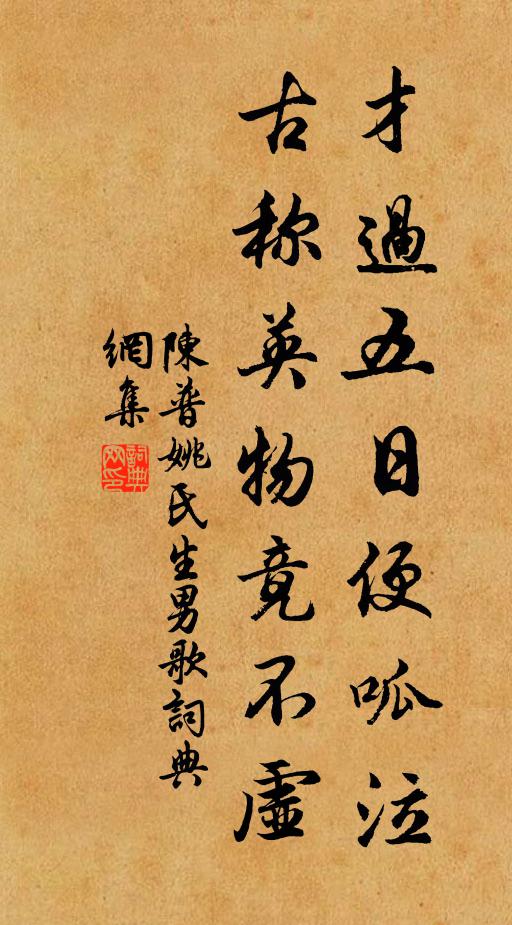 才過五日便呱泣
古称英物竟不虛
陳普姚氏生男歌詞典
網集
詞典
网印